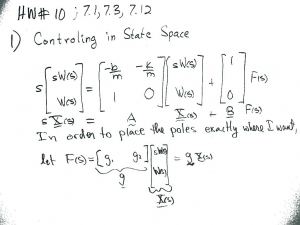 HW# 10 ; 7.1, 7.3, 7.12
1) Controling in State Space
s [sW(s) W(s)] = [-b/m -k/m 1 0] [sW(s) W(s)] + [1 0] F(s)
s X(s) = A X(s) + B F(s)
In order to place the poles exactly where I want,
let F(s) = [g₁ g₂] [sW(s) W(s)] = g X(s)
g
X(s)